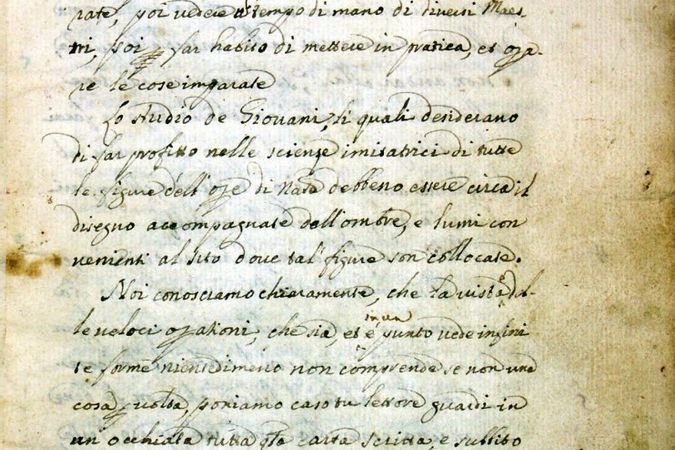 rate, poi vedere u tempo di mano di diversi Maes-
tri, poi p far habito di mettere in pratica, et ope-
re le cose imparate
Lo studio de Giovani, li quali desiderano
di far profitto nelle scienze imitatrici di tutte
le figure dell'ope di Nãa debbeno essere circa il
disegno accompagnate dall'ombre, e lumi con
venienti al sito dove tal figure son collocate.
Noi conosciamo chiaramente, che la vista è del-
le veloci opationi, che sia, et è in un punto vede infini
te forme nientedimeno non comprende se non una
cosa p volta, poniamo caso tu lettore guardi in
un occhiata tutta qta carta scritta, e subbito